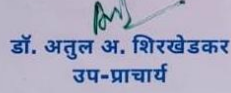 डॉ. अतुल अ. शिरखेडकर
उप-प्राचार्य